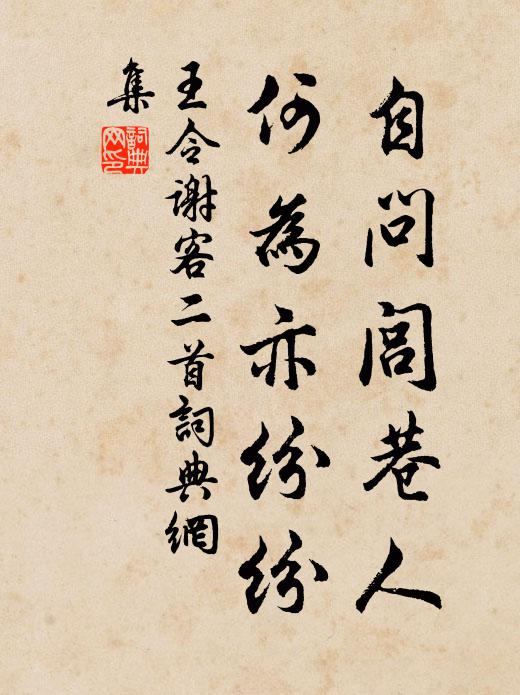 自问闾巷人
何為亦纷纷
王令谢客二首詞典網
集
詞典网印